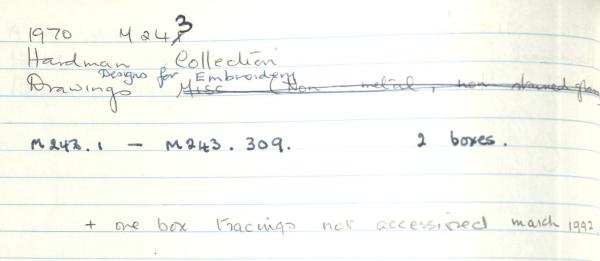 1970 M243
Hardman Collection
Designs for Embroidery
Drawings Misc (Non metal, non stained glass
M243.1 - M243.309. 2 boxes.
+ one box tracings not accessioned march 1992